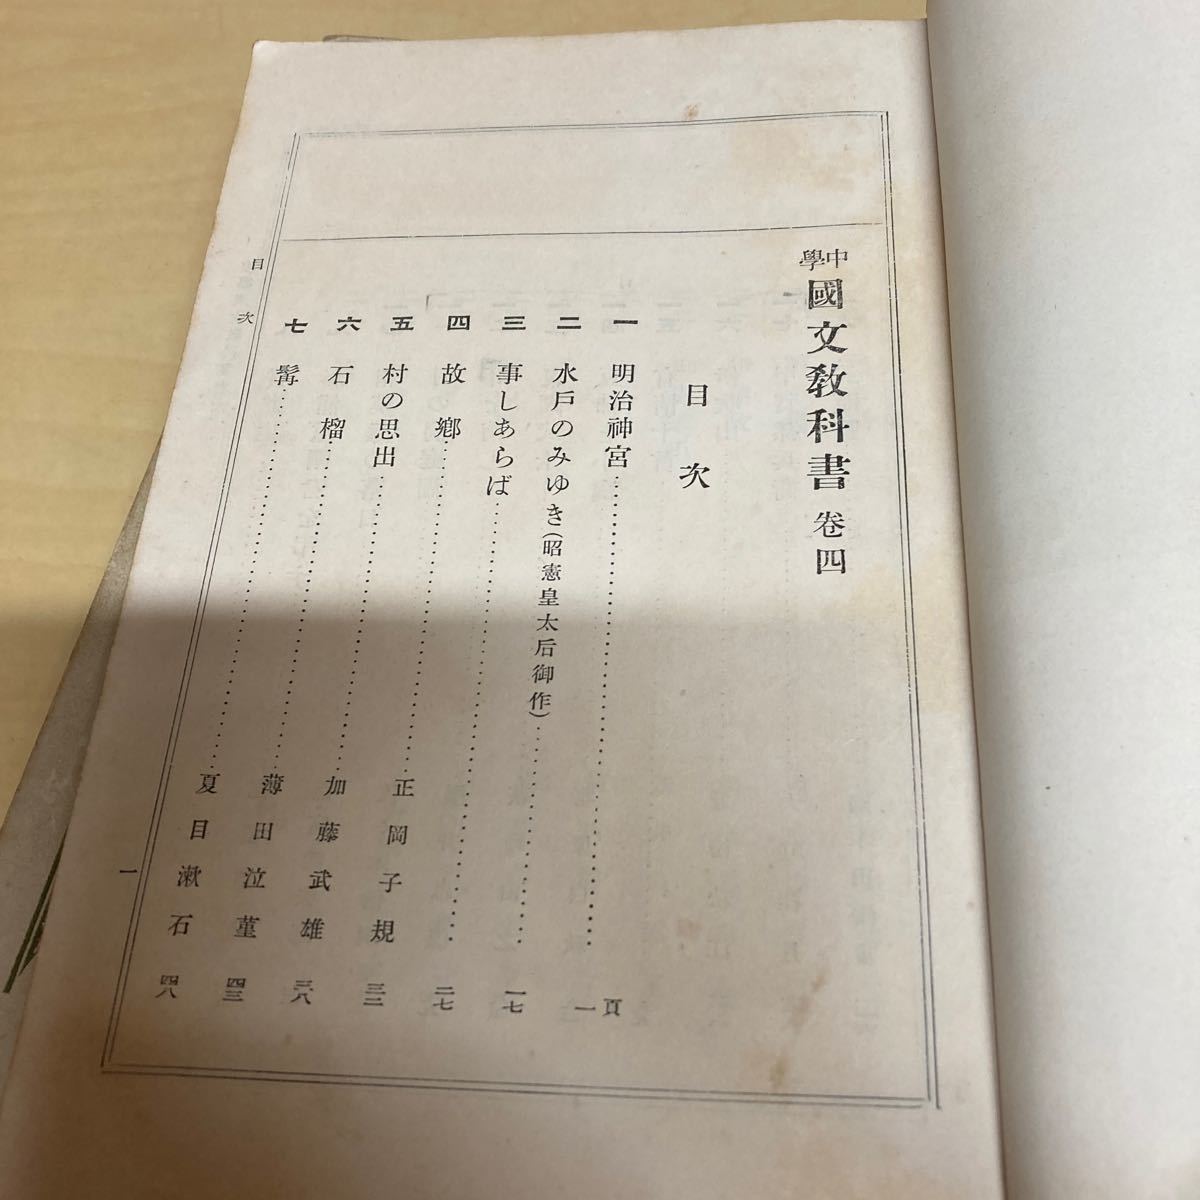 中學國文敎科書 卷四
目次
一 明治神宮 頁一
二 水戸のみゆき(昭憲皇太后御作) 一七
三 事しあらば 二七
四 故鄕 正岡子規 三二
五 村の思出 加藤武雄 三八
六 石榴 薄田泣菫 四三
七 髯 夏目漱石 四八
目次
一